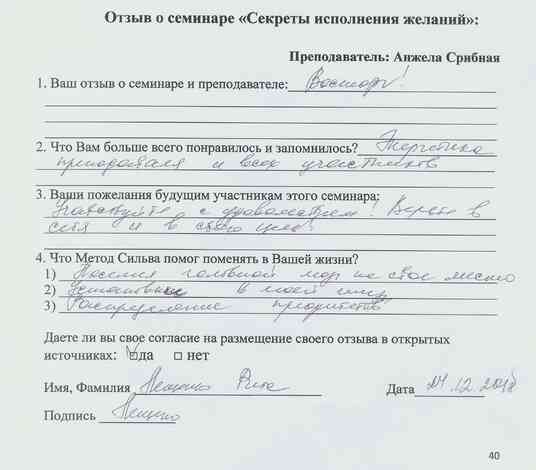 Отзыв о семинаре «Секреты исполнения желаний»:
Преподаватель: Анжела Срибная
1. Ваш отзыв о семинаре и преподавателе: Восторг!
2. Что Вам больше всего понравилось и запомнилось? Энергетика
преподавателя и всех участников
3. Ваши пожелания будущим участникам этого семинара:
с удовольствием! Верьте в
себя и в свою цель!
4. Что Метод Сильва помог поменять в Вашей жизни?
1) головной на свое место
2) в моей
3) Распределение приоритетов
Даете ли вы свое согласие на размещение своего отзыва в открытых
источниках: да нет
Имя, Фамилия Нещенко Рита Дата 12.2018
Подпись Нещенко
40